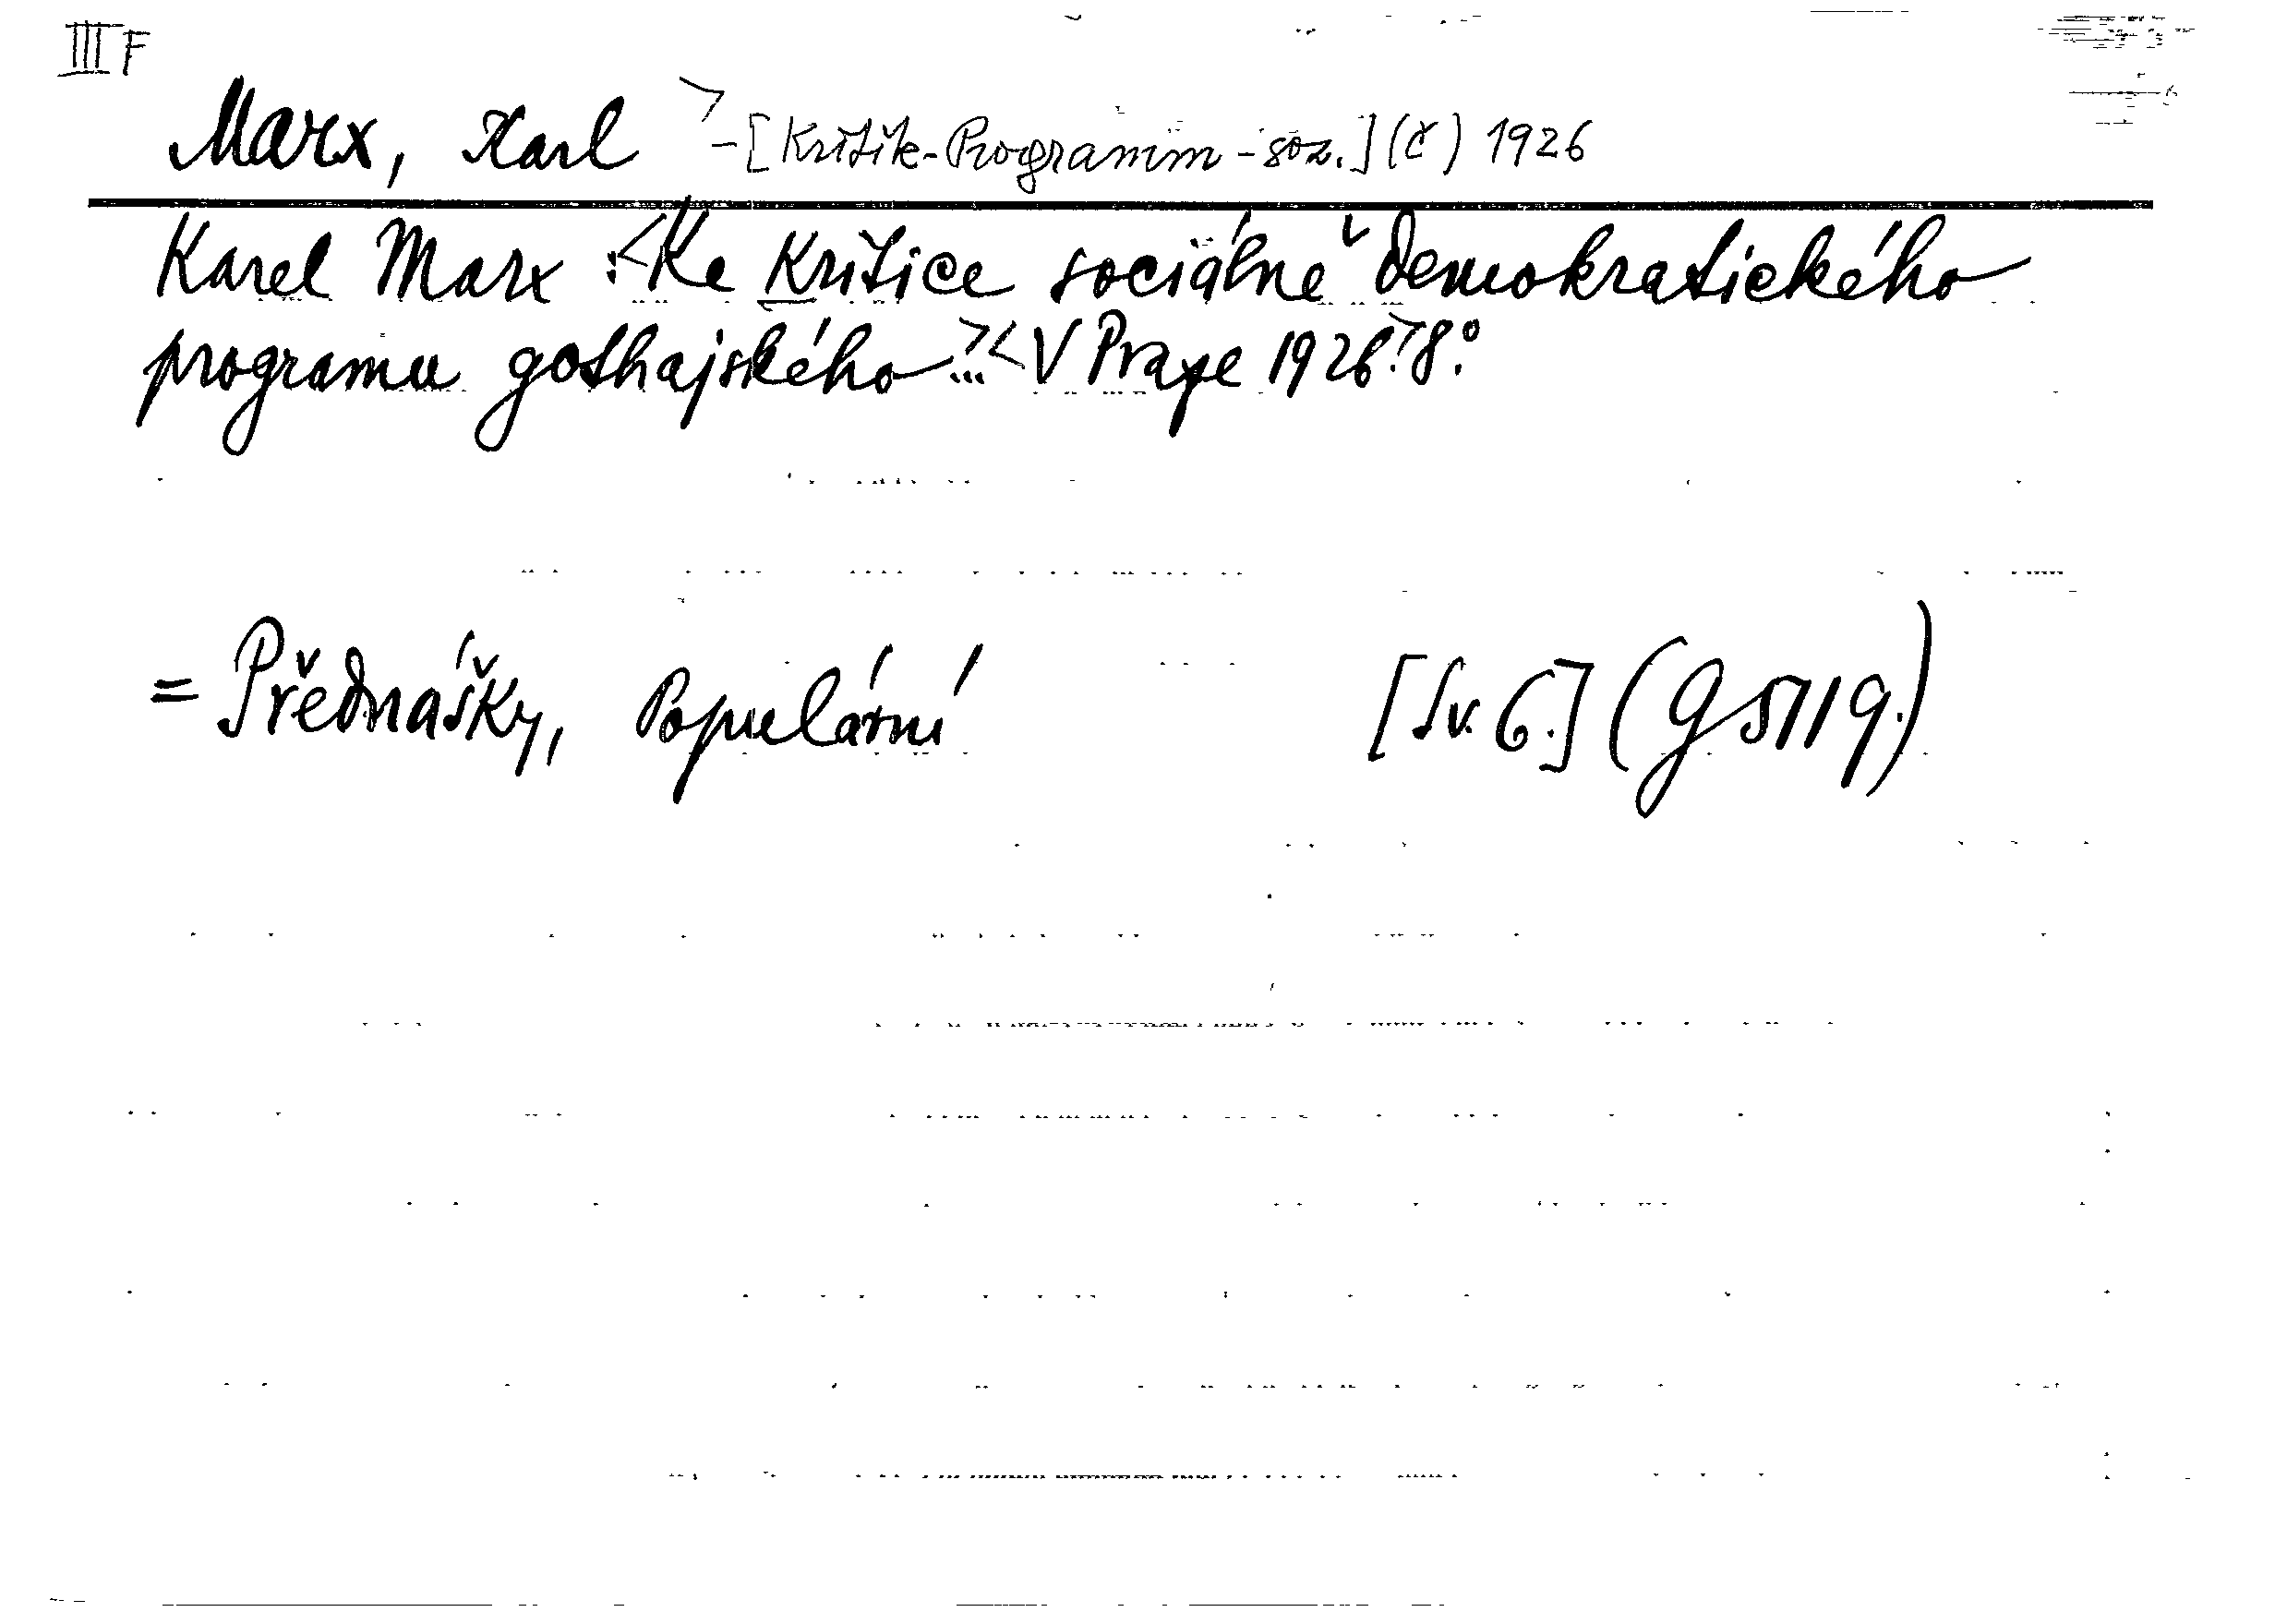 III F
Marx, Karl > -[Kritik-Programm-soz.](č) 1926
Karel Marx :<Ke Kritice sociálně demokratického
programu gothajského...><V Praze 1926.>8°
= Přednášky, Populární [Sv. 6.] (G 5119.)